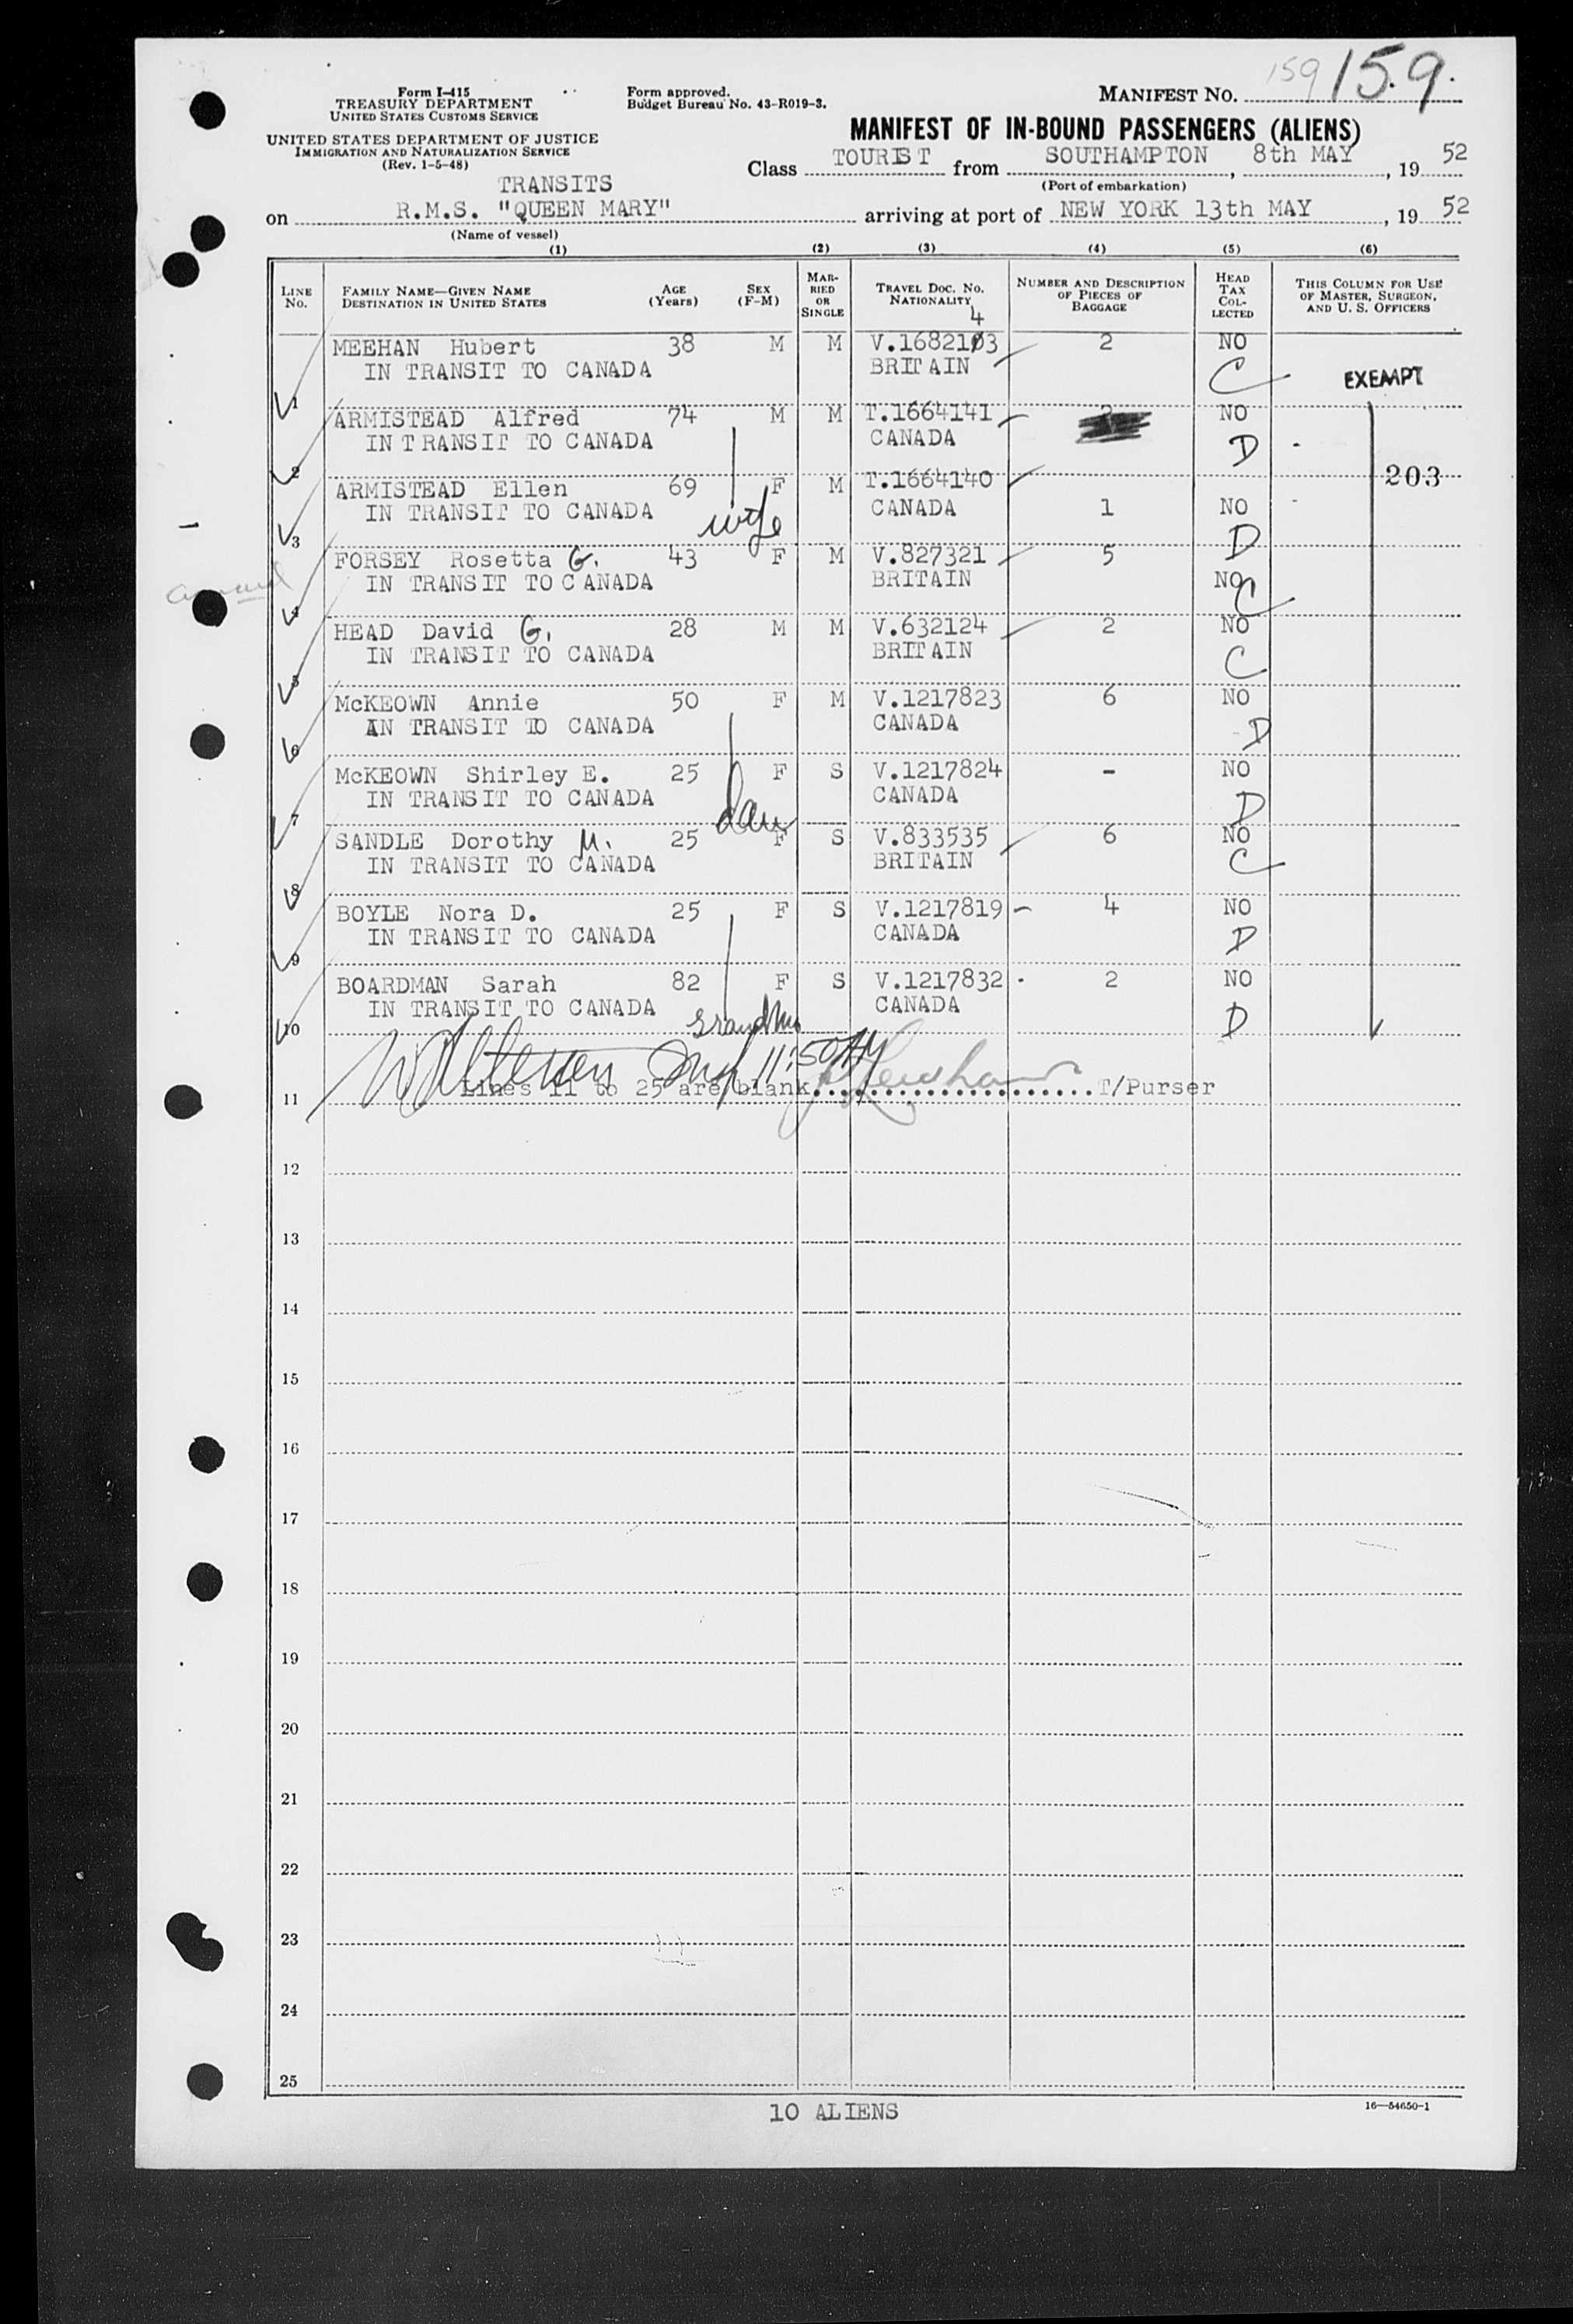 159 159.
Form I-415
TREASURY DEPARTMENT
UNITED STATES CUSTOMS SERVICE
UNITED STATES DEPARTMENT OF JUSTICE
IMMIGRATION AND NATURALIZATION SERVICE
(Rev. 1-5-48)
Form approved.
Budget Bureau No. 43-R019-3.
MANIFEST NO.
MANIFEST OF IN-BOUND PASSENGERS (ALIENS)
Class TOURIST from SOUTHAMPTON, 8th MAY, 19 52
(Port of embarkation)
TRANSITS
on R.M.S. "QUEEN MARY" arriving at port of NEW YORK 13th MAY, 19 52
(Name of vessel)
(1) (2) (3) (4) (5) (6)
LINE NO. FAMILY NAME—GIVEN NAME DESTINATION IN UNITED STATES AGE (Years) SEX (F-M) MARRIED OR SINGLE TRAVEL DOC. NO. NATIONALITY NUMBER AND DESCRIPTION OF PIECES OF BAGGAGE HEAD TAX COLLECTED THIS COLUMN FOR USE OF MASTER, SURGEON, AND U. S. OFFICERS
4
MEEHAN Hubert 38 M M V.1682103 2 NO
IN TRANSIT TO CANADA BRITAIN C EXEMPT
1
ARMISTEAD Alfred 74 M M T.1664141 NO
IN TRANSIT TO CANADA CANADA D
2 203
ARMISTEAD Ellen 69 F M T.1664140
IN TRANSIT TO CANADA wife CANADA 1 NO
3 D
FORSEY Rosetta G. 43 F M V.827321 5
IN TRANSIT TO CANADA BRITAIN NO C
4
HEAD David G. 28 M M V.632124 2 NO
IN TRANSIT TO CANADA BRITAIN C
5
McKEOWN Annie 50 F M V.1217823 6 NO
IN TRANSIT TO CANADA CANADA D
6
McKEOWN Shirley E. 25 F S V.1217824 - NO
IN TRANSIT TO CANADA dau CANADA D
7
SANDLE Dorothy M. 25 F S V.833535 6 NO
IN TRANSIT TO CANADA BRITAIN C
8
BOYLE Nora D. 25 F S V.1217819 4 NO
IN TRANSIT TO CANADA CANADA D
9
BOARDMAN Sarah 82 F S V.1217832 2 NO
IN TRANSIT TO CANADA grandmo CANADA D
10
11:50 AM
Lines 11 to 25 are blank....................T/Purser
11
12
13
14
15
16
17
18
19
20
21
22
23
24
25
10 ALIENS
16—54650-1